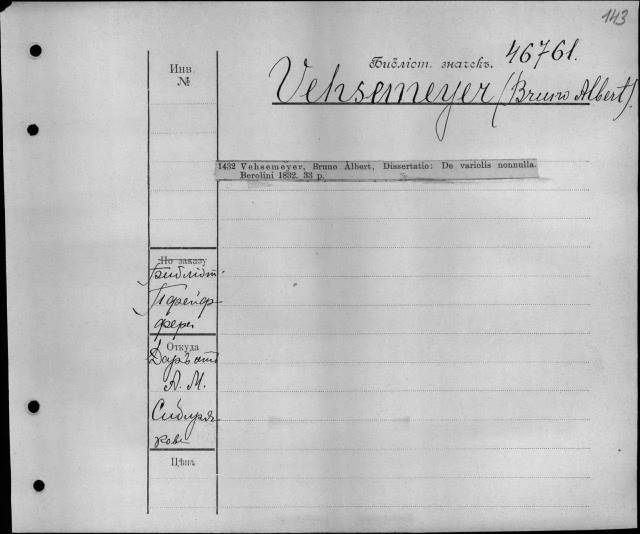 143
Инв.
№
Библіот. значекъ. 46761.
Vehsemeyer (Bruno Albert)
1432 Vehsemeyer, Bruno Albert, Dissertatio: De variolis nonnulla.
Berolini 1832. 33 p.
По заказу
Библіот.
Пфейф-
фера
Откуда
Даръ отъ
А. М.
Сибиря-
кова
Цѣна